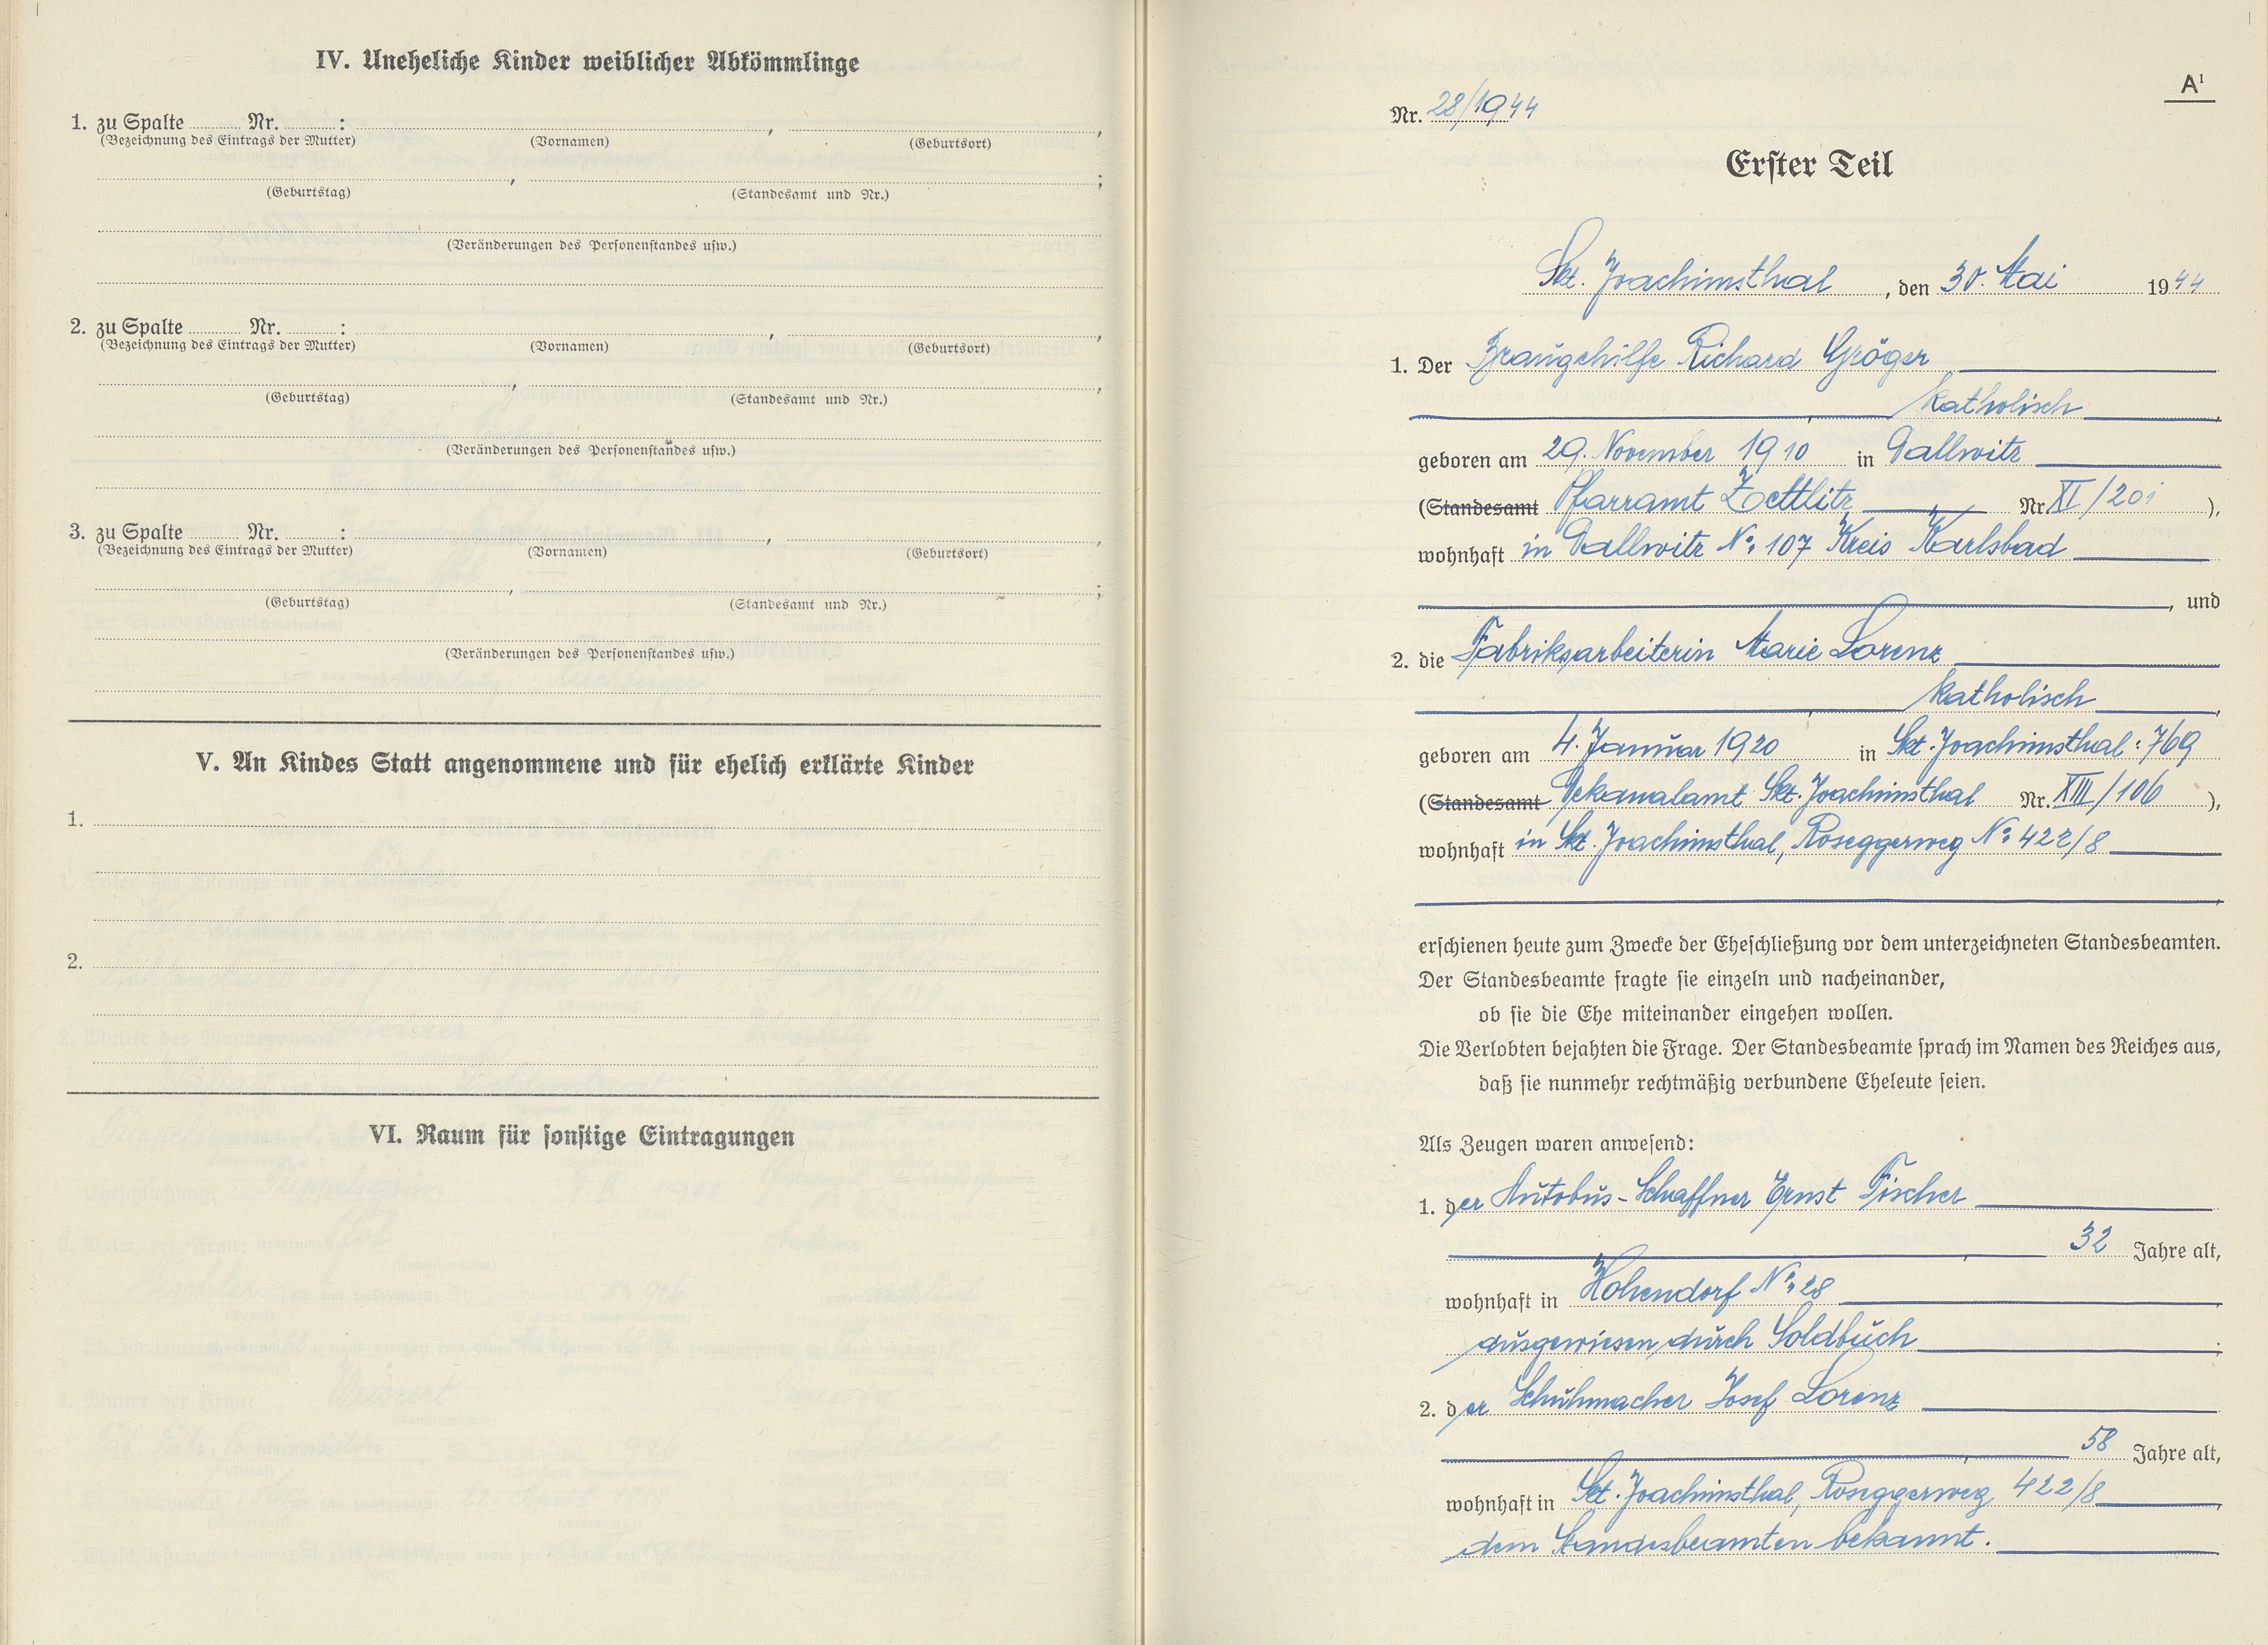 IV. Uneheliche Kinder weiblicher Abkömmlinge
1. zu Spalte Nr. : , ,
(Bezeichnung des Eintrags der Mutter) (Vornamen) (Geburtsort)
, ;
(Geburtstag) (Standesamt und Nr.)
(Veränderungen des Personenstandes usw.)
2. zu Spalte Nr. : , ,
(Bezeichnung des Eintrags der Mutter) (Vornamen) (Geburtsort)
, ,
(Geburtstag) (Standesamt und Nr.)
(Veränderungen des Personenstandes usw.)
3. zu Spalte Nr. : , ,
(Bezeichnung des Eintrags der Mutter) (Vornamen) (Geburtsort)
, ;
(Geburtstag) (Standesamt und Nr.)
(Veränderungen des Personenstandes usw.)
V. An Kindes Statt angenommene und für ehelich erklärte Kinder
1.
2.
VI. Raum für sonstige Eintragungen
A¹
Nr. 22/1944
Erster Teil
Skt. Joachimsthal, den 30. Mai 1944
1. Der Braugehilfe Richard Gröger
, katholisch,
geboren am 29. November 1910 in Dallwitz
(Standesamt Pfarramt Zettlitz Nr. XI/201),
wohnhaft in Dallwitz No. 107 Kreis Karlsbad
, und
2. die Fabriksarbeiterin Marie Lorenz
, katholisch,
geboren am 4. Januar 1920 in Skt. Joachimsthal: 769
(Standesamt Dekanalamt Skt. Joachimsthal Nr. XIII/106),
wohnhaft in Skt. Joachimsthal, Roseggerweg No. 422/8
,
erschienen heute zum Zwecke der Eheschließung vor dem unterzeichneten Standesbeamten.
Der Standesbeamte fragte sie einzeln und nacheinander,
ob sie die Ehe miteinander eingehen wollen.
Die Verlobten bejahten die Frage. Der Standesbeamte sprach im Namen des Reiches aus,
daß sie nunmehr rechtmäßig verbundene Eheleute seien.
Als Zeugen waren anwesend:
1. der Autobus-Schaffner Ernst Fischer
, 32 Jahre alt,
wohnhaft in Hohendorf No. 28
ausgewiesen durch Soldbuch ;
2. der Schuhmacher Josef Lorenz
, 58 Jahre alt,
wohnhaft in Skt. Joachimsthal, Roseggerweg 422/8,
dem Standesbeamten bekannt.